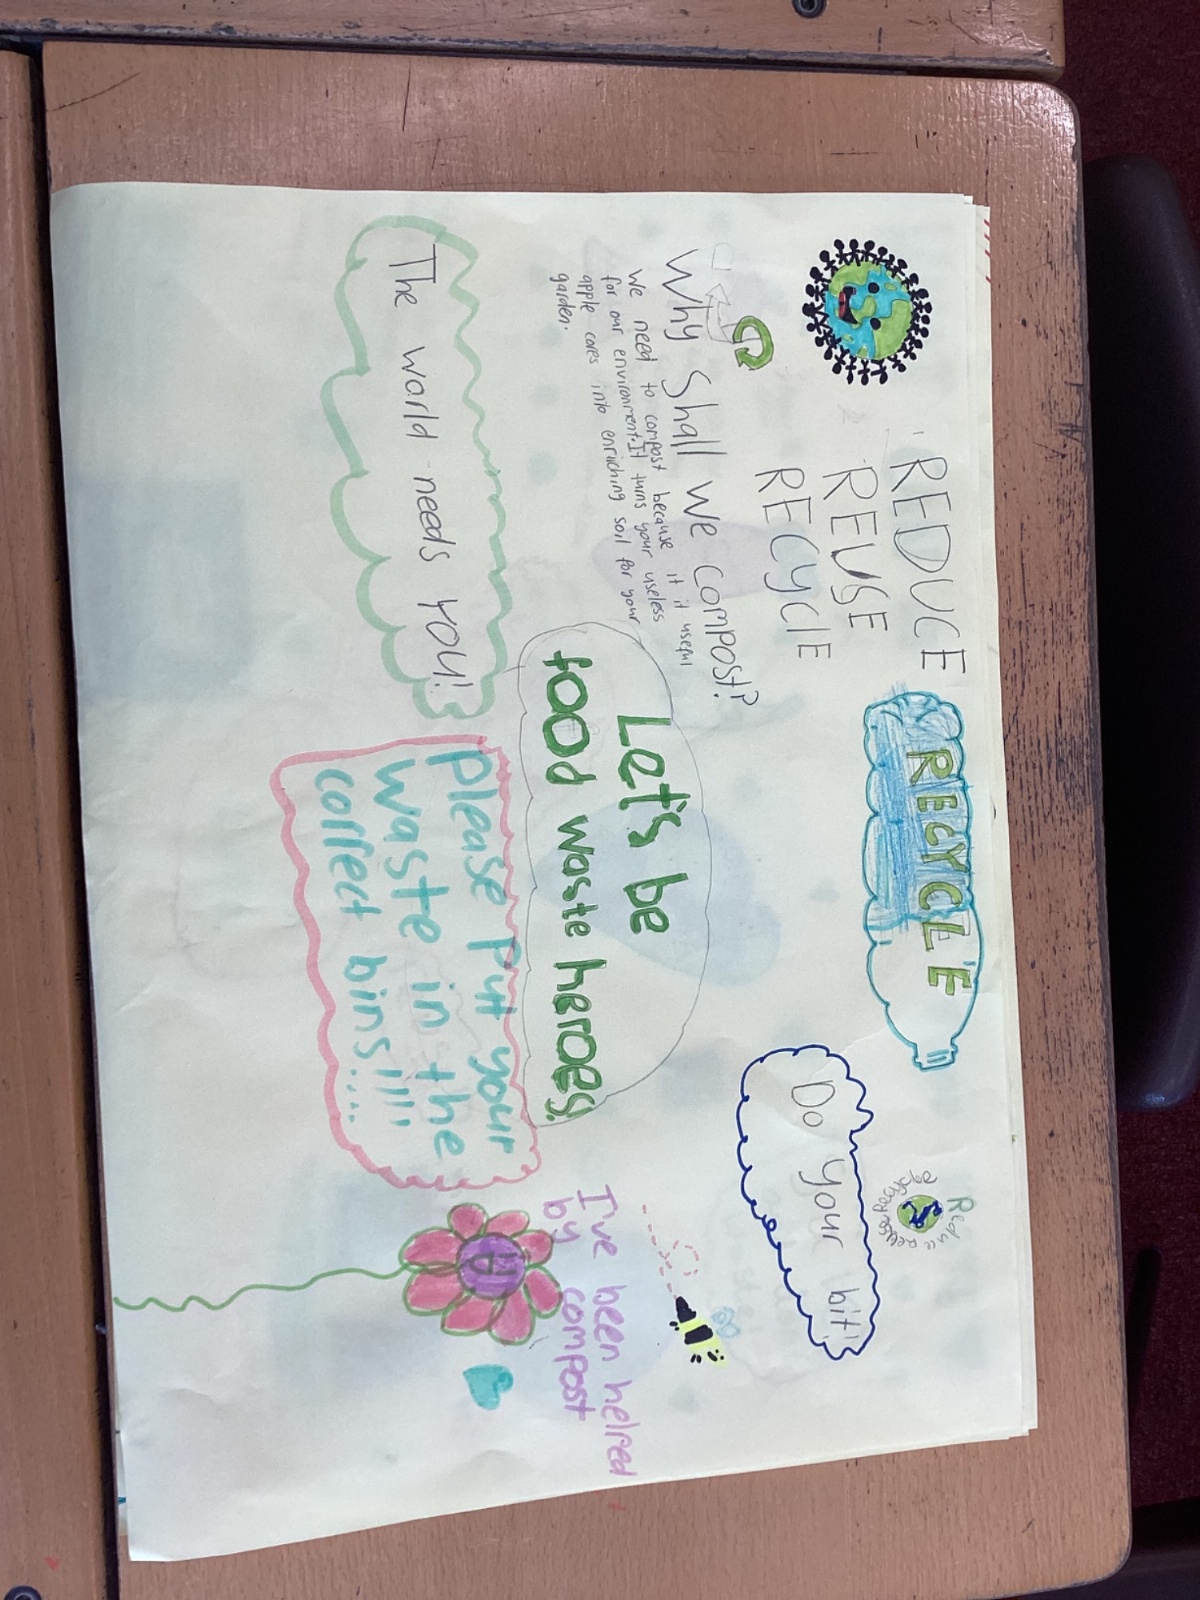 REDUCE
REUSE
RECYCLE
RECYCLE
Reduce Reuse Recycle
Do your bit!
Why Shall we compost?
We need to compost because it it useful
for our environment. It turns your useless
apple cores into enriching soil for your
garden.
Let's be
food waste heroes!
The world needs YOU!
please put your
waste in the
correct bins!!!!....
I've been helped
by compost